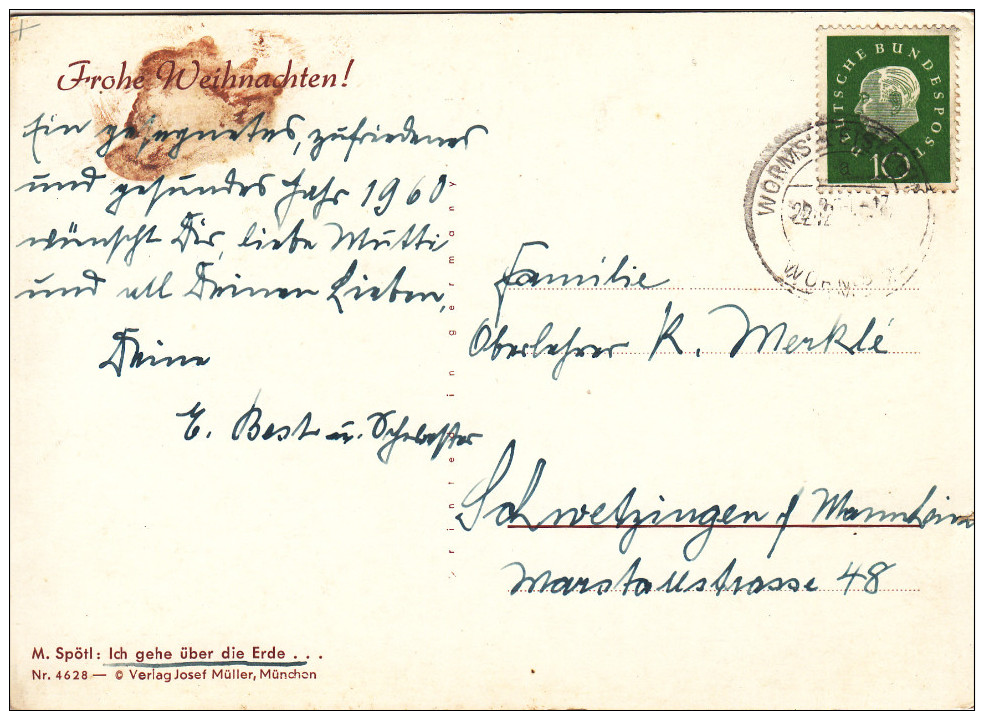 Frohe Weihnachten!
Ein gesegnetes, zufriedenes
und gesundes Jahr 1960
wünscht Dir, liebe Mutti
und all Deinen Lieben,
Deine
E. Best u. Schwester
M. Spötl: Ich gehe über die Erde . . .
Nr. 4628 — © Verlag Josef Müller, München
printed in germany
DEUTSCHE BUNDESPOST
10
WORMS
22.12
WORMS
Familie
Oberlehrer K. Merklé
Schwetzingen / Mannheim
Marstallstrasse 48